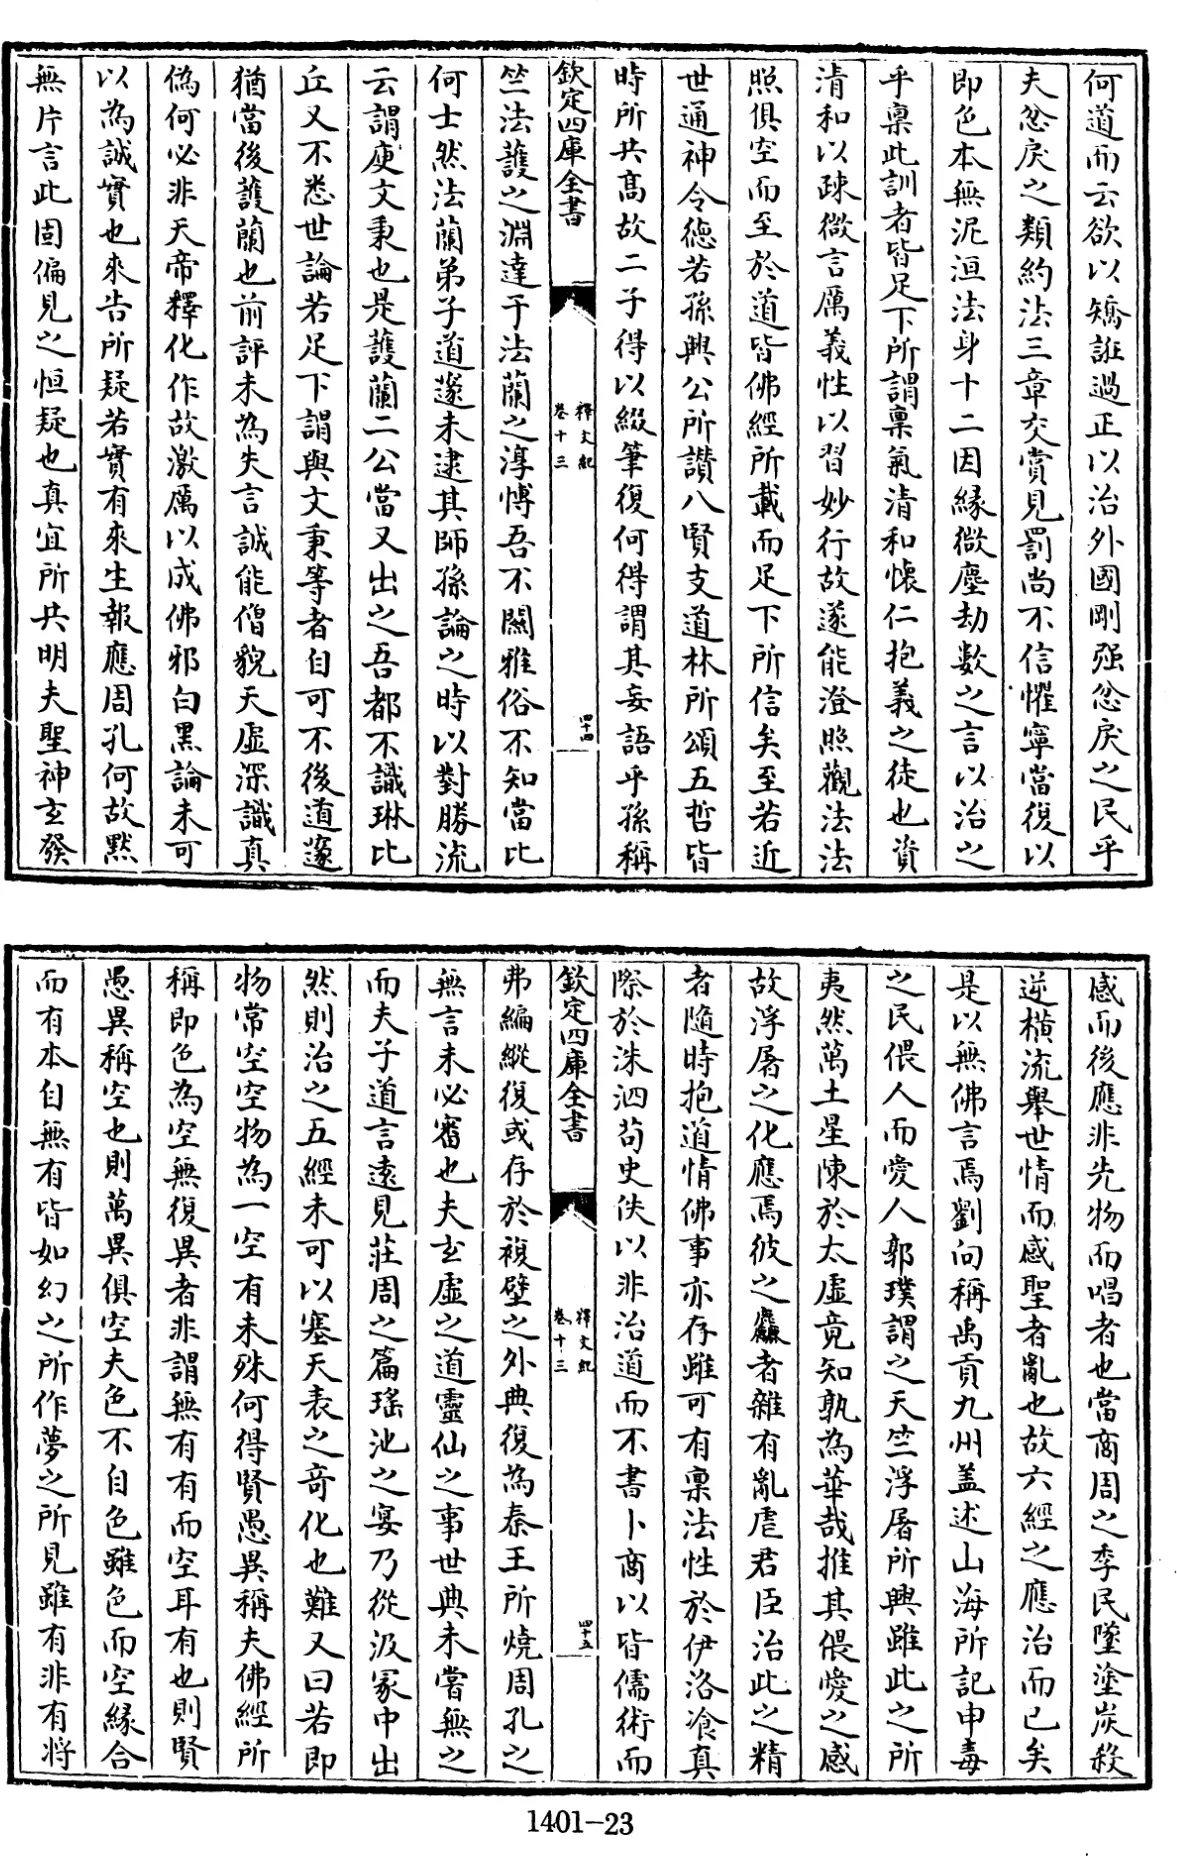 何道而云欲以矯誑過正以治外國剛強忿戾之民乎
夫忿戾之類約法三章交賞見罰尚不信懼寧當復以
即色本無泥洹法身十二因緣微塵劫數之言以治之
乎稟此訓者皆足下所謂稟氣清和懷仁抱義之徒也資
清和以疎微言厲義性以習妙行故遂能澄照觀法法
照俱空而至於道皆佛經所載而足下所信矣至若近
世通神令德若孫興公所讚八賢支道林所頌五哲皆
時所共高故二子得以綴筆復何得謂其妄語乎孫稱
欽定四庫全書
釋文紀
卷十三
四十四
竺法護之淵達于法蘭之淳慱吾不關雅俗不知當比
何士然法蘭弟子道邃未逮其師孫論之時以對勝流
云謂庾文秉也是護蘭二公當又出之吾都不識琳比
丘又不悉世論若足下謂與文秉等者自可不後道邃
猶當後護蘭也前評未為失言誠能僧貌天虛深識真
偽何必非天帝釋化作故激厲以成佛邪白黒論未可
以為誠實也來告所疑若實有來生報應周孔何故黙
無片言此固偏見之恒疑也真宜所共明夫聖神玄發
感而後應非先物而唱者也當商周之季民墜塗炭殺
逆橫流舉世情而感聖者亂也故六經之應治而已矣
是以無佛言焉劉向稱禹貢九州盖述山海所記申毒
之民偎人而愛人郭璞謂之天竺浮屠所興雖此之所
夷然萬土星陳於太虛竟知孰為華哉推其偎愛之感
故浮屠之化應焉彼之麤者雜有亂虐君臣治此之精
者隨時抱道情佛事亦存雖可有稟法性於伊洛飡真
際於洙泗茍史佚以非治道而不書卜商以皆儒術而
欽定四庫全書
釋文紀
卷十三
四十五
弗編縱復或存於複壁之外典復為秦王所燒周孔之
無言未必審也夫玄虛之道靈仙之事世典未嘗無之
而夫子道言遠見莊周之篇瑤池之宴乃從汲冢中出
然則治之五經未可以塞天表之竒化也難又曰若即
物常空空物為一空有未殊何得賢愚異稱夫佛經所
稱即色為空無復異者非謂無有有而空耳有也則賢
愚異稱空也則萬異俱空夫色不自色雖色而空緣合
而有本自無有皆如幻之所作夢之所見雖有非有將
1401-23